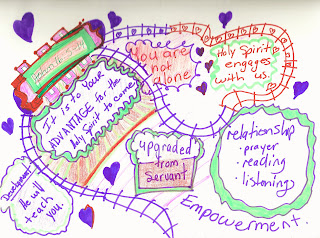 You are
not
alone.
Holy Spirit
engages
with us.
It is to YOUR
ADVANTAGE for the
Holy Spirit to come.
upgraded
from
Servant
relationship
• prayer
• reading
• listening
Development
He will
teach
you.
Empowerment.